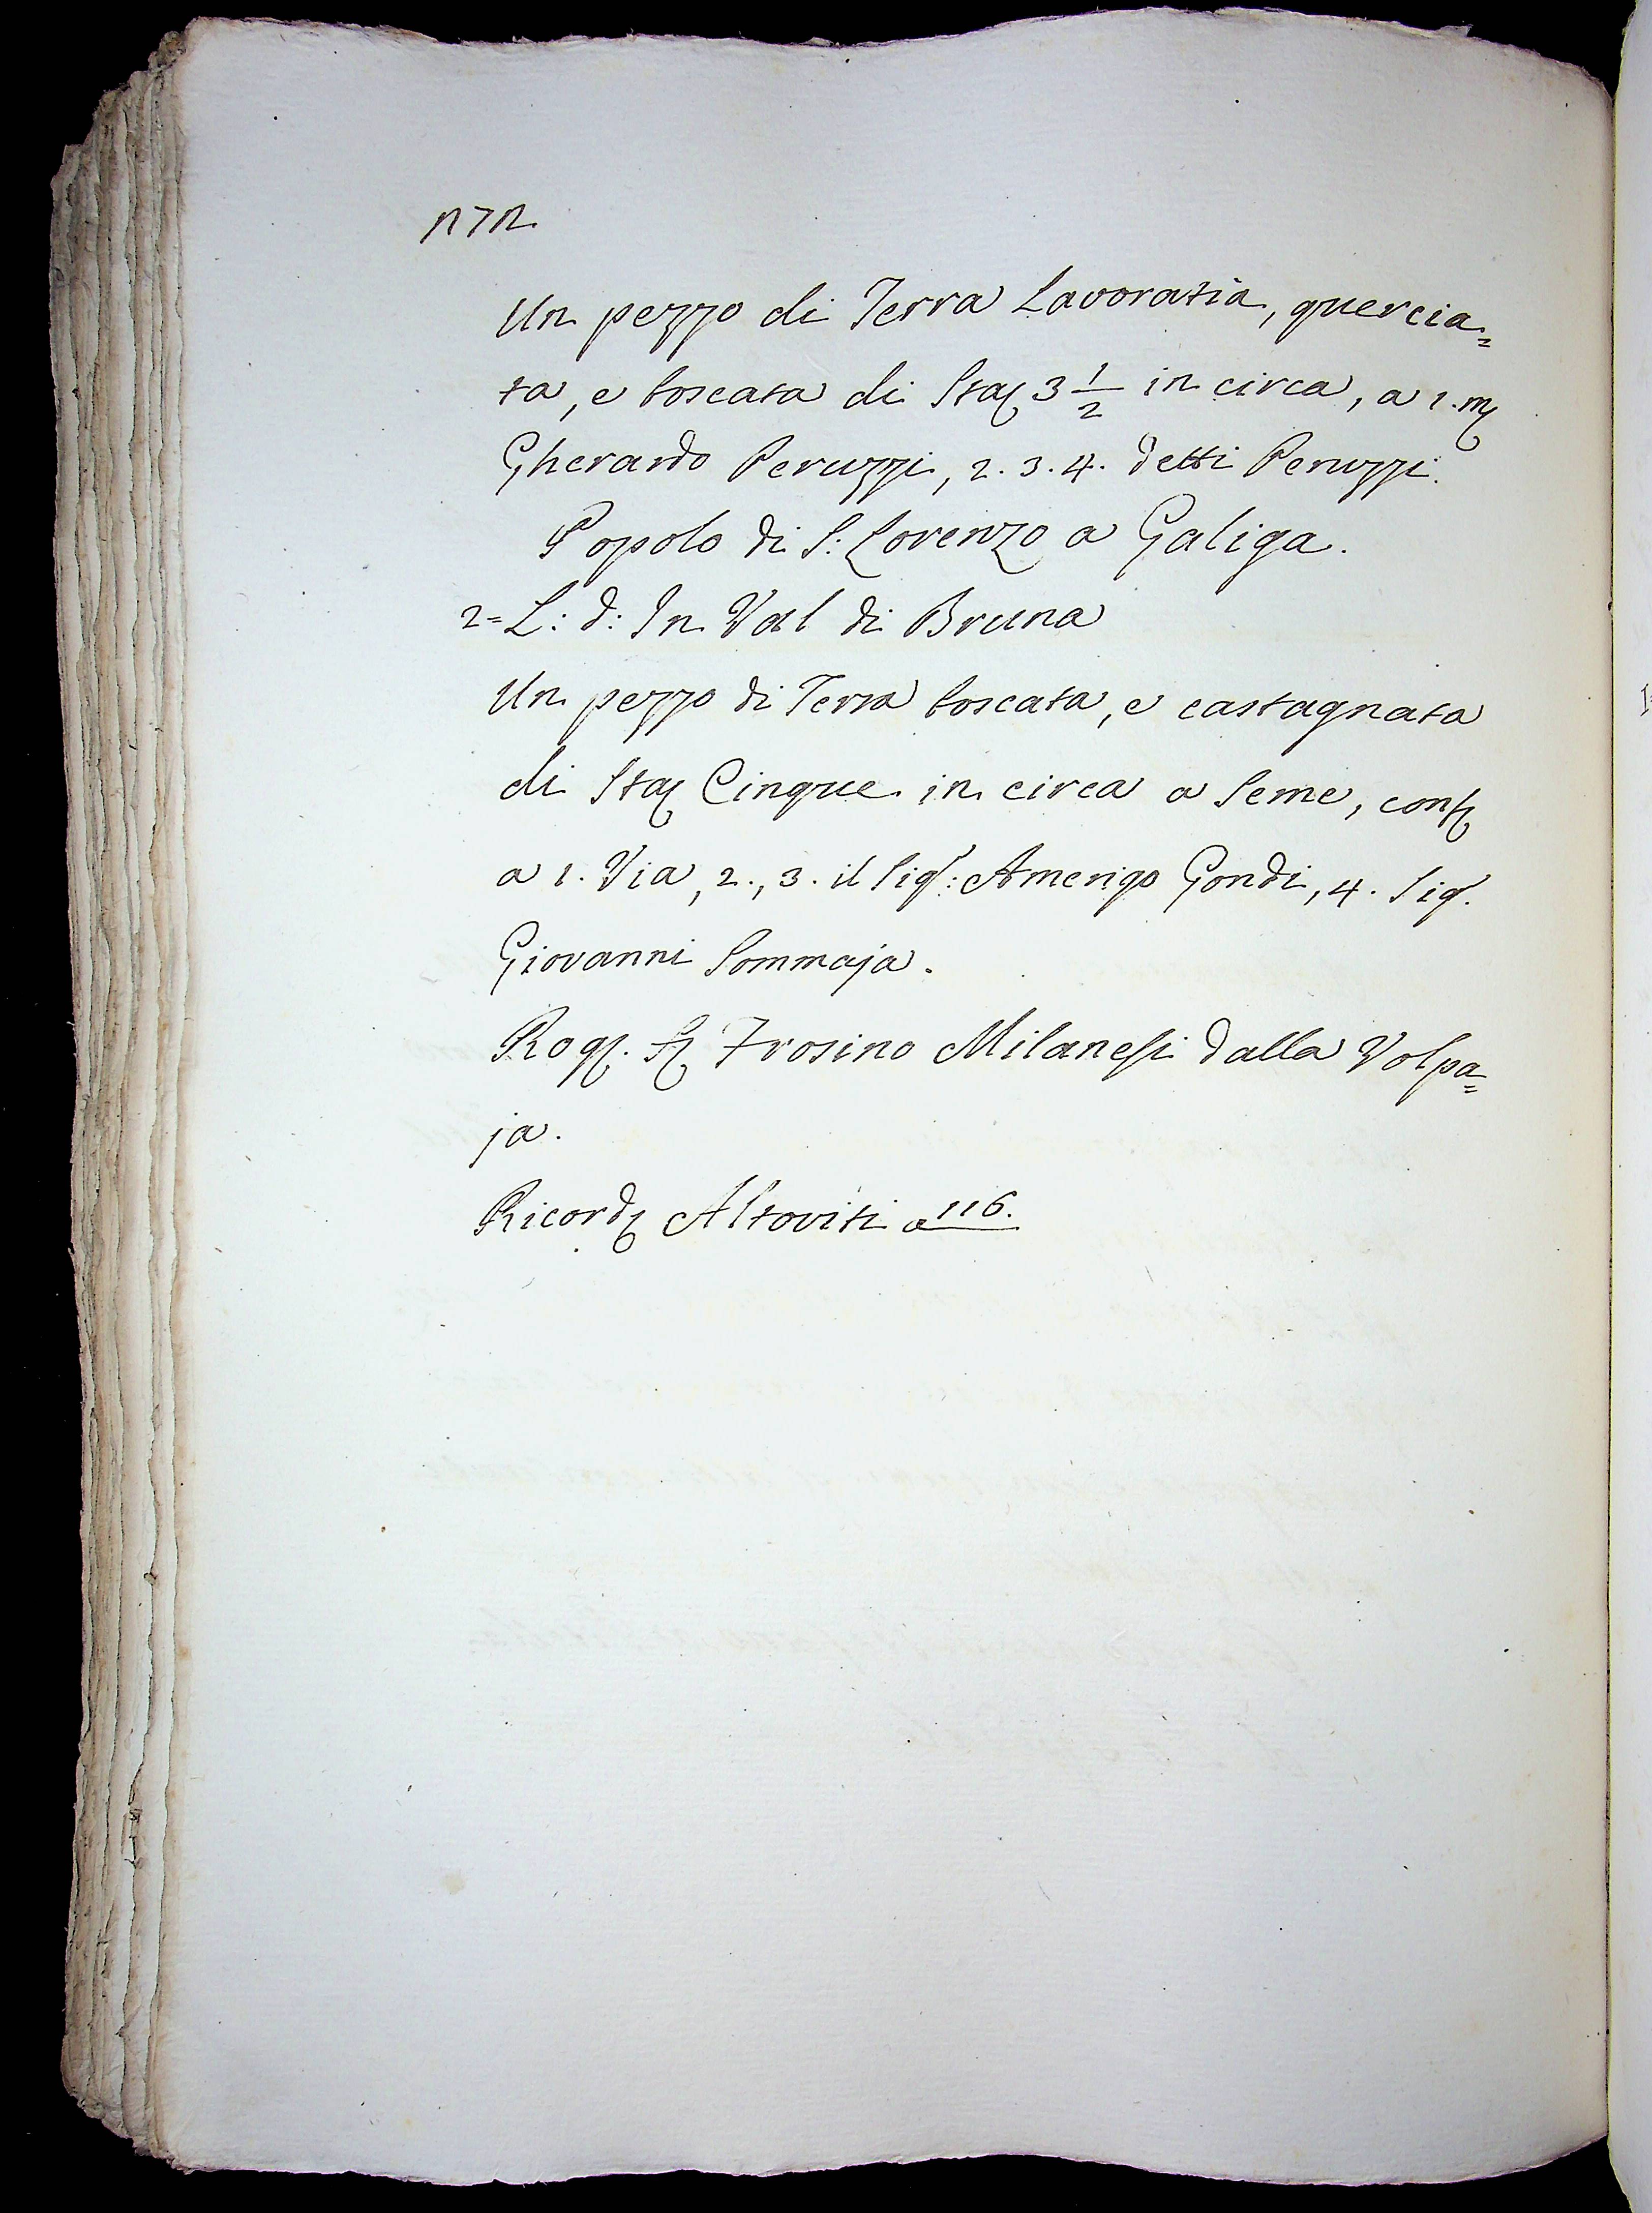 172
Un pezzo di Terra Lavoratia, quercia=
ta, e boscata di Staj 3 1/2 in circa, a 1. mẽ
Gherardo Peruzzi, 2. 3. 4. detti Peruzzi.
Popolo di S: Lorenzo a Galiga.
2= L: d: In Val di Bruna
Un pezzo di Terra boscata, e castagnata
di Staj Cinque in circa a Seme, conf
a 1. Via, 2., 3. il Sig: Amerigo Gondi, 4. Sig.
Giovanni Sommaja.
Rog. Frosino Milanesi dalla Volpa=
ja.
Ricord Altoviti a 116.